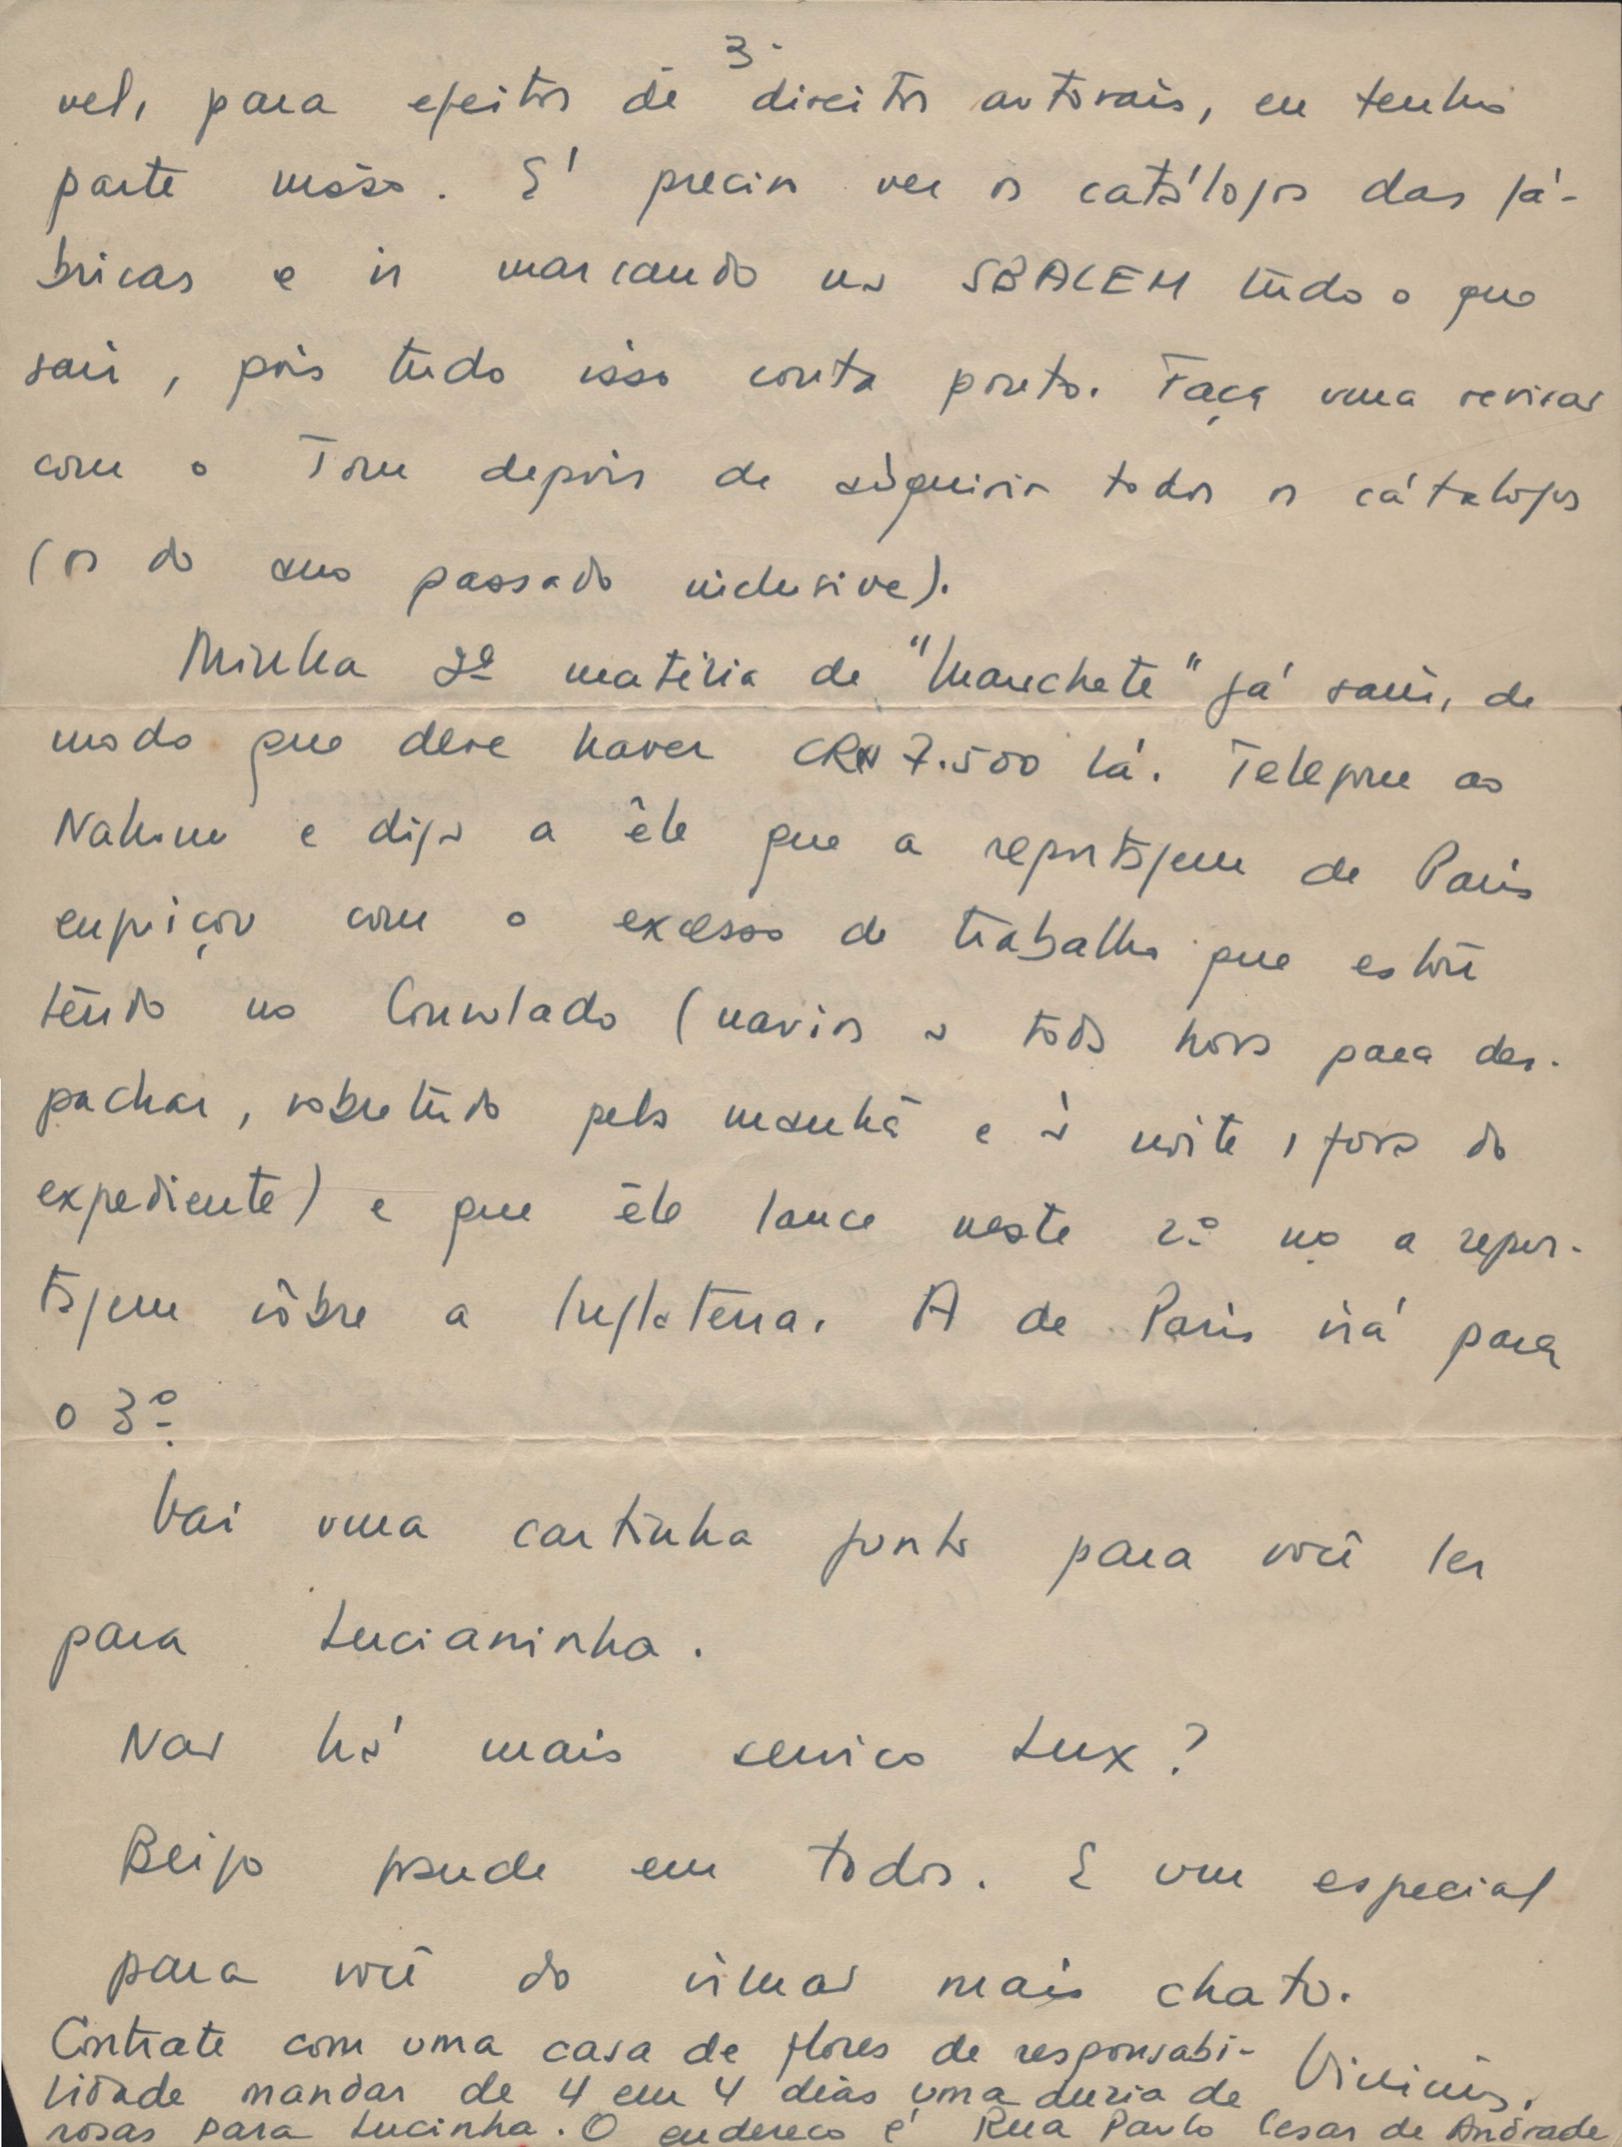 3.
vel, para efeitos de direitos autorais, eu tenho
parte nisso. É preciso ver os catálogos das fá-
bricas e ir marcando na SBACEM tudo o que
sair, pois tudo isso conta ponto. Faça uma revisão
com o Tom depois de adquirir todos os cátalogos
(os do ano passado inclusive).
Minha 2ª matéria de "Manchete" já saiu, de
modo que deve haver CR$ 7.500 lá. Telefone ao
Nahum e diga a êle que a reportagem de Paris
enguiçou com o excesso de trabalho que estou
tendo no Consulado (navios a toda hora para des-
pachar, sobretudo pela manhã e à noite, fora do
expediente) e que êle lance neste 2º no a repor-
tagem sôbre a Inglaterra. A de Paris irá para
o 3º.
Vai uma cartinha junto para você ler
para Lucianinha.
Não há mais serviço Lux?
Beijo grande em todos. E um especial
para você do irmão mais chato.
Contrate com uma casa de flores de responsabi-
Vinicius.
lidade mandar de 4 em 4 dias uma duzia de
rosas para Lucinha. O endereco é Rua Paulo Cesar de Andrade